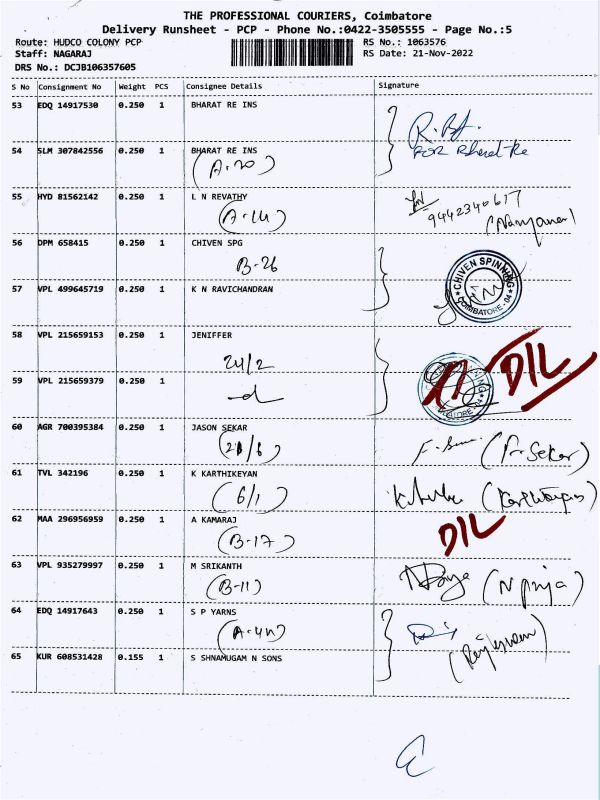 THE PROFESSIONAL COURIERS, Coimbatore
Delivery Runsheet - PCP - Phone No.:0422-3505555 - Page No.:5
Route: HUDCO COLONY PCP
RS No.: 1063576
Staff: NAGARAJ
RS Date: 21-Nov-2022
DRS No.: DCJB106357605
S No Consignment No Weight PCS Consignee Details Signature
53 EDQ 14917530 0.250 1 BHARAT RE INS
FOR Bharat Re
54 SLM 307842556 0.250 1 BHARAT RE INS
(A-20)
55 HYD 81562142 0.250 1 L N REVATHY
9442340617
(A-14)
56 DPM 658415 0.250 1 CHIVEN SPG
B-26
CHIVEN SPINNING
COIMBATORE-04
57 VPL 499645719 0.250 1 K N RAVICHANDRAN
58 VPL 215659153 0.250 1 JENIFFER
24/2
DIL
59 VPL 215659379 0.250 1
60 AGR 700395384 0.250 1 JASON SEKAR
(21/6)
(F-Sekar)
61 TVL 342196 0.250 1 K KARTHIKEYAN
(6/1)
62 MAA 296956959 0.250 1 A KAMARAJ
(B-17)
DIL
63 VPL 935279997 0.250 1 M SRIKANTH
(B-11)
(N prija)
64 EDQ 14917643 0.250 1 S P YARNS
65 KUR 608531428 0.155 1 S SHNAMUGAM N SONS